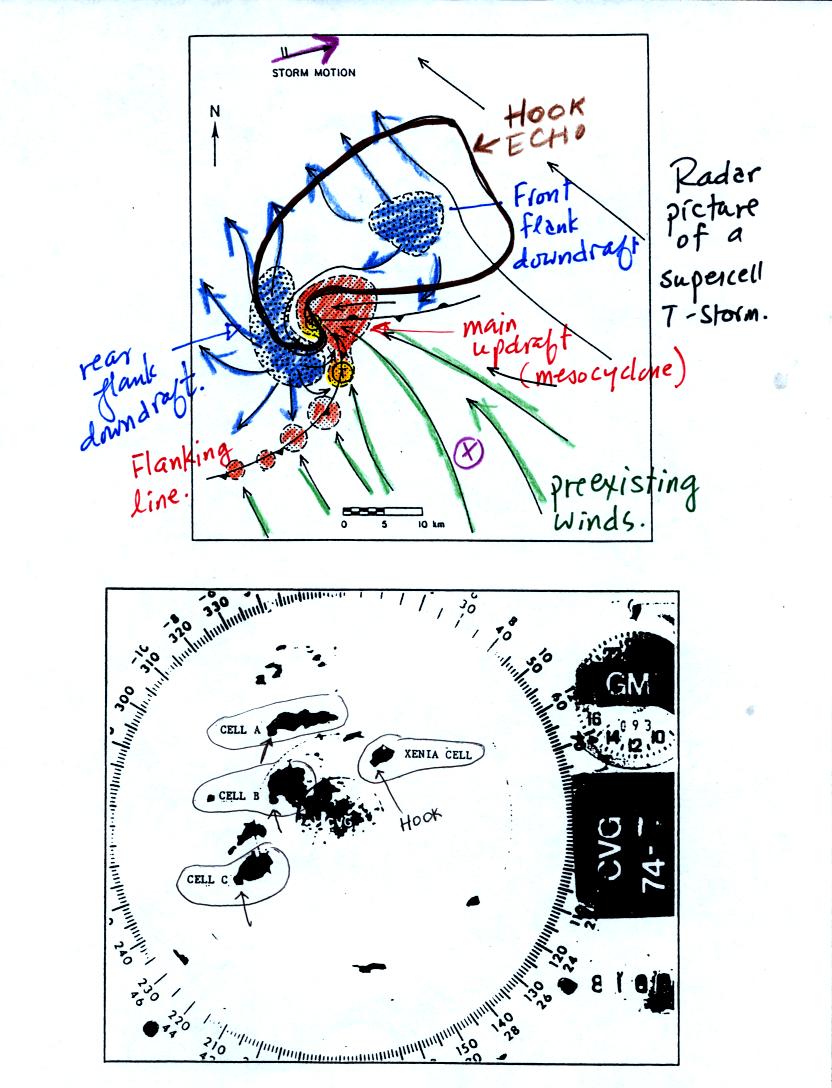 STORM MOTION
N
HOOK
ECHO
Radar
picture
of a
supercell
T-Storm.
Front
flank
downdraft
main
updraft
(mesocyclone)
rear
flank
downdraft.
Flanking
line.
X
preexisting
winds.
0 5 10 km
330
320
310
300
30
40
50
60
CELL A
XENIA CELL
CELL B
CVG
HOOK
CELL C
GM
16
14
12
10
CVG
74-
240
230
46
220
44
210
150
140
28
130
26
120
24